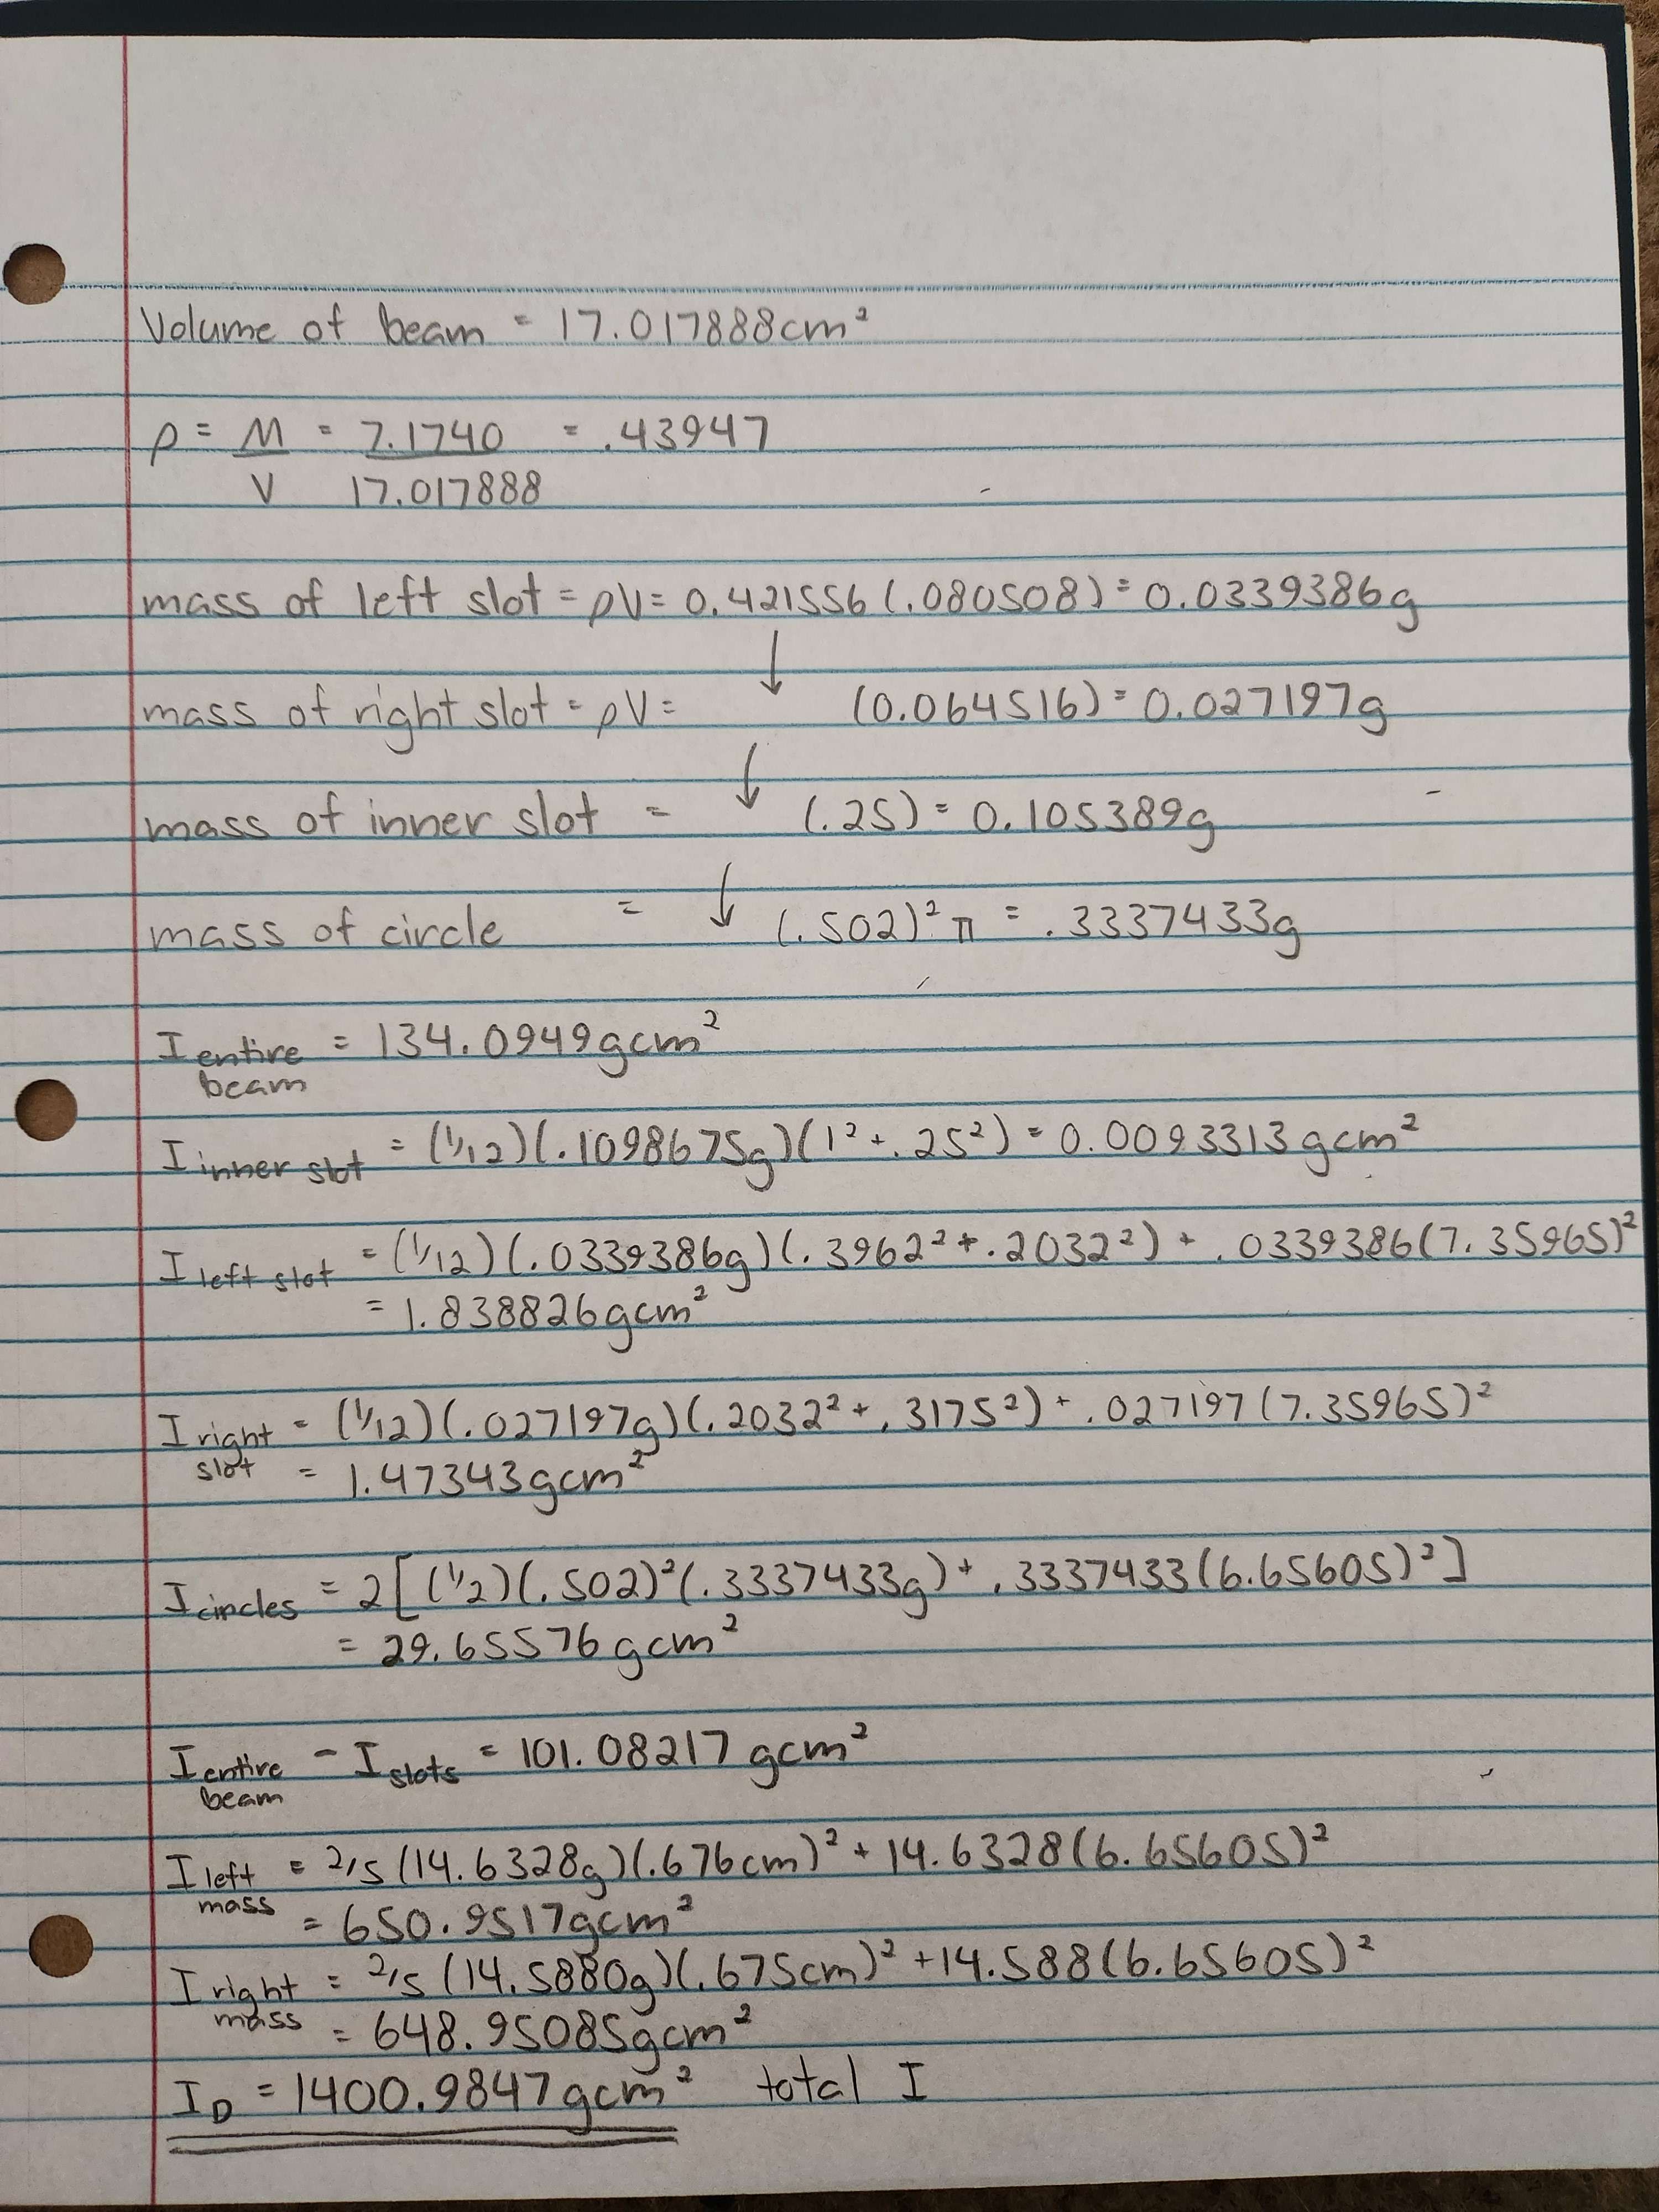 Volume of beam = 17.017888cm²
ρ = M/V = 7.1740/17.017888 = .43947
mass of left slot = ρV = 0.421556(.080508) = 0.0339386g
mass of right slot = ρV = ↓ (0.064516) = 0.027197g
mass of inner slot = ↓ (.25) = 0.105389g
mass of circle = ↓ (.502)²π = .3337433g
I entire beam = 134.0949gcm²
I inner slot = (1/12)(.1098675g)(1² + .25²) = 0.0093313gcm²
I left slot = (1/12)(.0339386g)(.3962² + .2032²) + .0339386(7.35965)²
= 1.838826gcm²
I right slot = (1/12)(.027197g)(.2032² + .3175²) + .027197(7.35965)²
= 1.47343gcm²
I circles = 2[(1/2)(.502)²(.3337433g) + .3337433(6.65605)²]
= 29.65576gcm²
I entire beam - I slots = 101.08217 gcm²
I left mass = 2/5(14.6328g)(.676cm)² + 14.6328(6.65605)²
= 650.9517gcm²
I right mass = 2/5(14.5880g)(.675cm)² + 14.588(6.65605)²
= 648.95085gcm²
I_D = 1400.9847gcm² total I